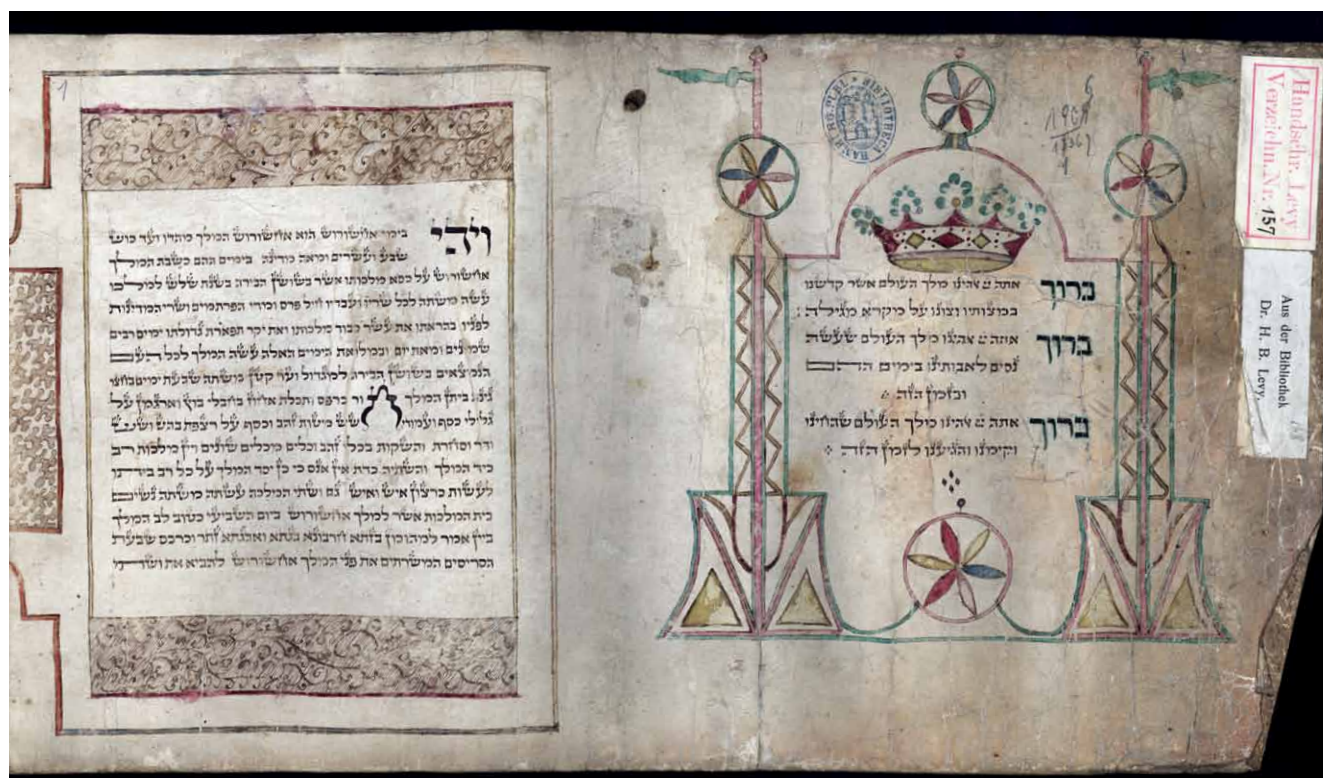 Handschr. Levy
Verzeichn. Nr. 157
Aus der Bibliothek
Dr. H. B. Levy.
BIBLIOTHECA
ברוך אתה ײ ﭏהינו מלך העולם אשר קדשנו
במצותיו וצונו על מקרא מגילה :
ברוך אתה ײ ﭏהינו מלך העולם שעשה
נסים לאבותינו בימים ההם
ובזמן הזה
ברוך אתה ײ ﭏהינו מלך העולם שהחינו
וקימנו והגיענו לזמן הזה
1
ויהי בימי אחשורוש הוא אחשורוש המלך מהדו ועד כוש
שבע ועשרים ומאה מדינה בימים ההם כשבת המלך
אחשורוש על כסא מלכותו אשר בשושן הבירה בשנת שלש למלכו
עשה משתה לכל שריו ועבדיו חיל פרס ומדי הפרתמים ושרי המדינות
לפניו בהראתו את עשר כבוד מלכותו ואת יקר תפארת גדולתו ימים רבים
שמונים ומאת יום ובמלואת הימים האלה עשה המלך לכל העם
הנמצאים בשושן הבירה למגדול ועד קטן משתה שבעת ימים בחצר
גנת ביתן המלך חור כרפס ותכלת אחוז בחבלי בוץ וארגמן על
גלילי כסף ועמודי שש מטות זהב וכסף על רצפת בהט ושש
ודר וסחרת והשקות בכלי זהב וכלים מכלים שונים ויין מלכות רב
כיד המלך והשתיה כדת אין אנס כי כן יסד המלך על כל רב ביתו
לעשות כרצון איש ואיש גם ושתי המלכה עשתה משתה נשים
בית המלכות אשר למלך אחשורוש ביום השביעי כטוב לב המלך
ביין אמר למהומן בזתא חרבונא בגתא ואבגתא זתר וכרכס שבעת
הסריסים המשרתים את פני המלך אחשורוש להביא את ושתי